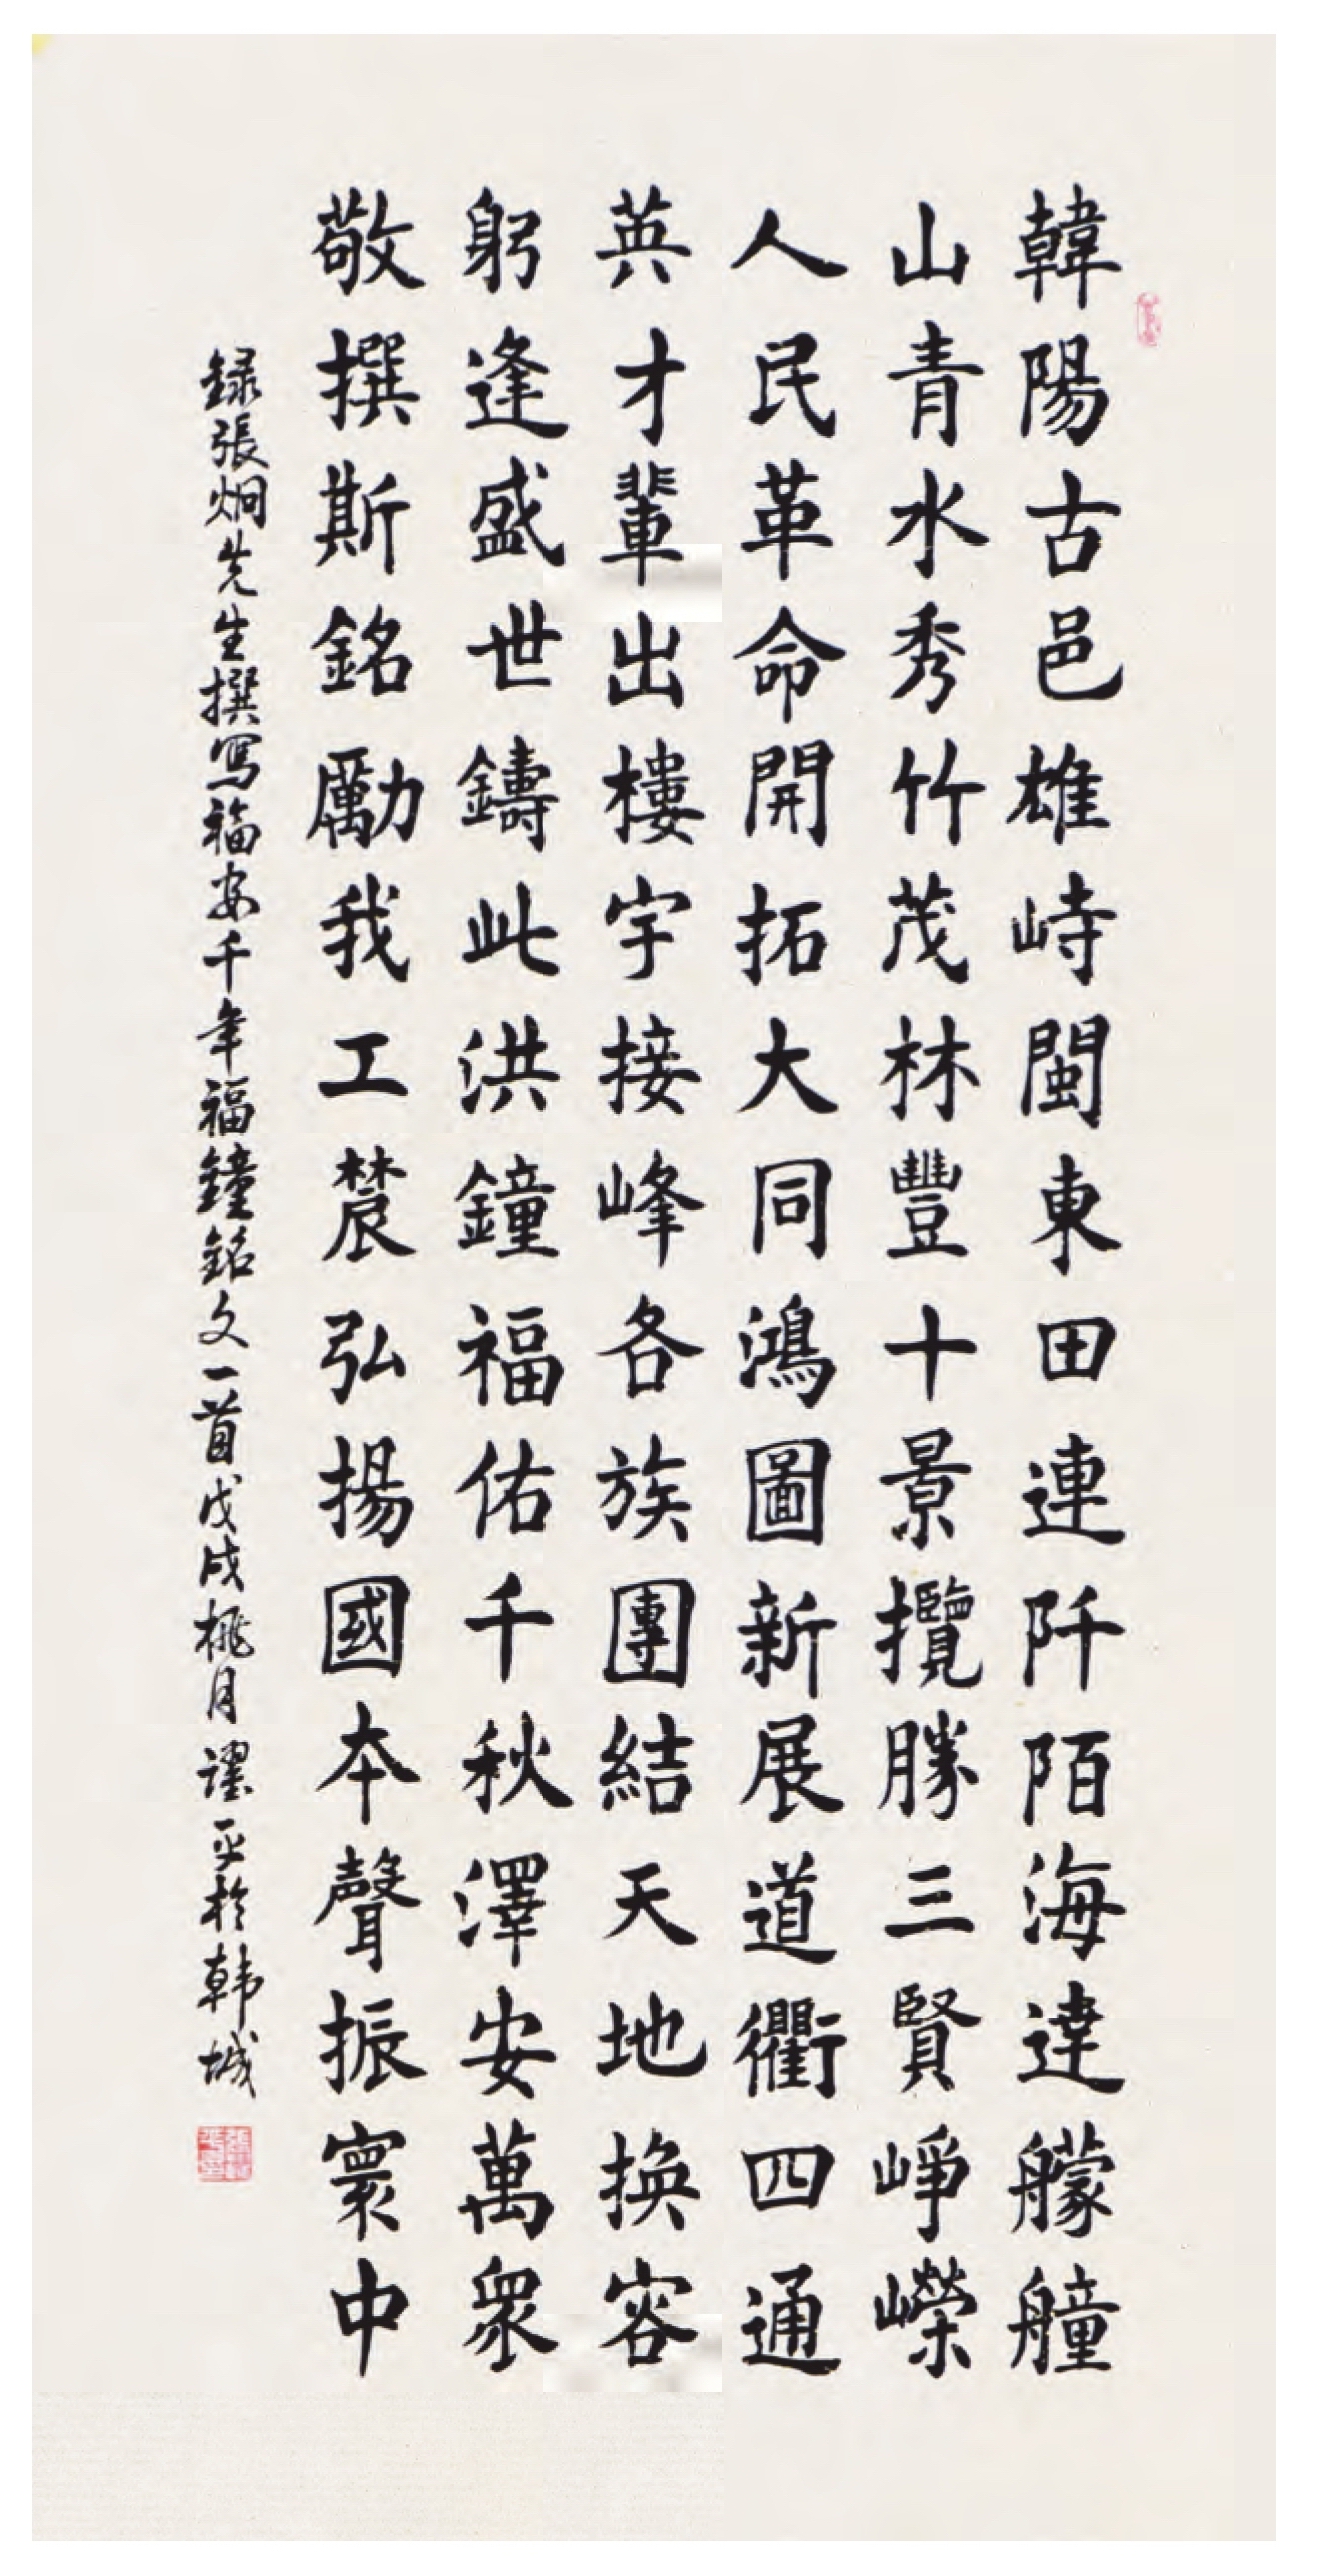 韓陽古邑雄峙閩東田連阡陌海達艨艟
山青水秀竹茂林豐十景攬勝三賢崢嶸
人民革命開拓大同鴻圖新展道衢四通
英才輩出樓宇接峰各族團結天地換容
躬逢盛世鑄此洪鐘福佑千秋澤安萬眾
敬撰斯銘勵我工農弘揚國本聲振寰中
録張炯先生撰寫福安千年福鐘銘文一首戊戌桃月躍平於韩城